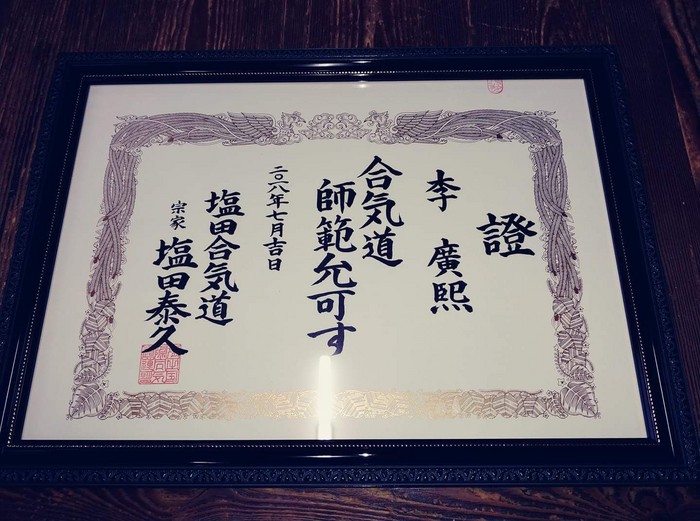 證
李 廣熙
合気道
師範允可す
二〇一八年七月吉日
塩田合気道
宗家 塩田泰久